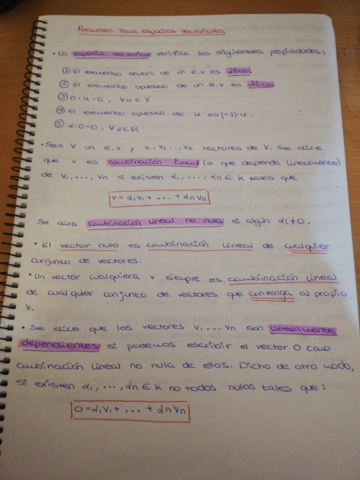 Resumen Tema espacios vectoriales
• Un espacio vectorial verifica las siguientes propiedades:
① El elemento neutro de un e.v es único
② El elemento opuesto de un e.v es único
③ 0·u=0, ∀u∈V
④ El elemento opuesto de u es (-1)·u.
⑤ α·0=0, ∀α∈ℝ
• Sean V un e.v y v₁, v₂...vₙ vectores de V. Se dice
que v es combinación lineal (o que depende linealmente)
de v₁,..., vₙ si existen α₁,..., αₙ ∈ K tales que
v=α₁v₁+...+αₙvₙ
Se dirá combinación lineal no nula si algún αᵢ≠0.
• El vector nulo es combinación lineal de cualquier
conjunto de vectores.
• Un vector cualquiera v siempre es combinación lineal
de cualquier conjunto de vectores que contenga al propio
v.
• Se dice que los vectores v₁...vₙ son linealmente
dependientes si podemos escribir el vector 0 como
combinación lineal no nula de ellos. Dicho de otro modo,
si existen α₁,..., αₙ ∈ K no todos nulos tales que:
0=α₁v₁+...+αₙvₙ